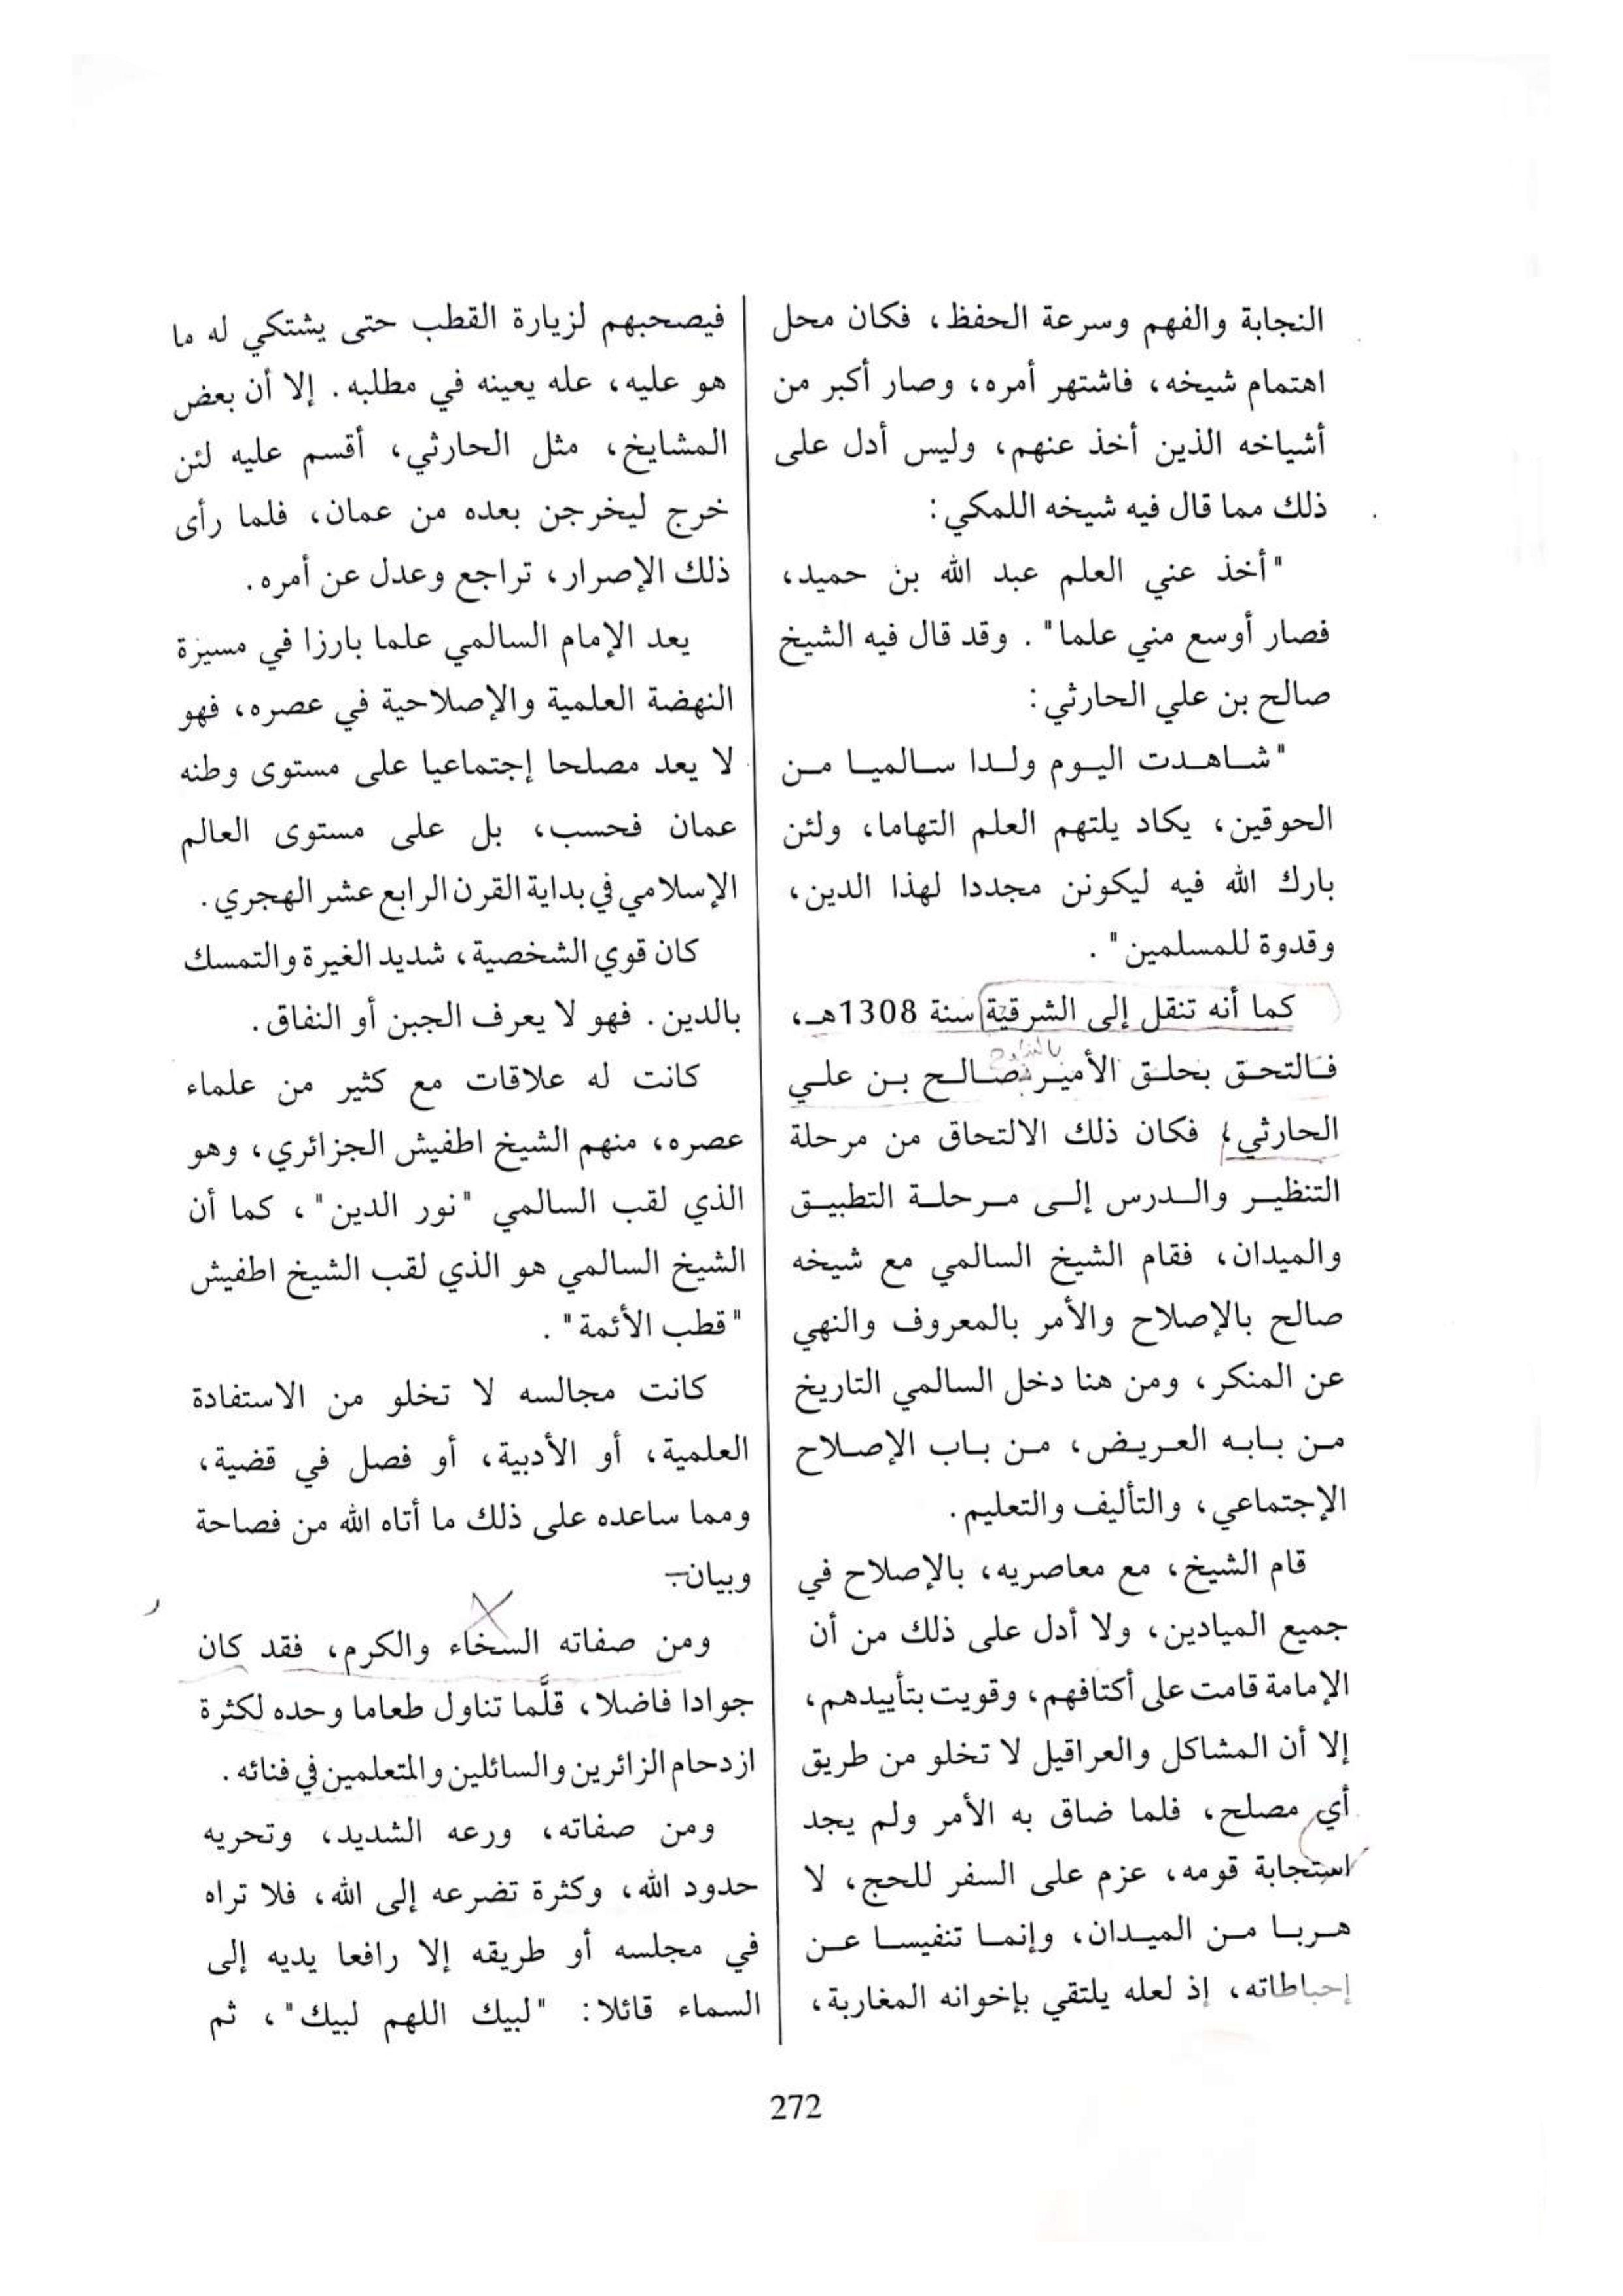 النجابة والفهم وسرعة الحفظ، فكان محل
اهتمام شيخه، فاشتهر أمره، وصار أكبر من
أشياخه الذين أخذ عنهم، وليس أدل على
ذلك مما قال فيه شيخه اللمكي:
"أخذ عني العلم عبد الله بن حميد،
فصار أوسع مني علما". وقد قال فيه الشيخ
صالح بن علي الحارثي:
"شاهدت اليوم ولدا سالميا من
الحوقين، يكاد يلتهم العلم التهاما، ولئن
بارك الله فيه ليكونن مجددا لهذا الدين،
وقدوة للمسلمين".
كما أنه تنقل إلى الشرقية سنة 1308هـ،
فالتحق بحلق الأمير صالح بن علي
الحارثي؛ فكان ذلك الالتحاق من مرحلة
التنظير والدرس إلى مرحلة التطبيق
والميدان، فقام الشيخ السالمي مع شيخه
صالح بالإصلاح والأمر بالمعروف والنهي
عن المنكر، ومن هنا دخل السالمي التاريخ
من بابه العريض، من باب الإصلاح
الإجتماعي، والتأليف والتعليم.
قام الشيخ، مع معاصريه، بالإصلاح في
جميع الميادين، ولا أدل على ذلك من أن
الإمامة قامت على أكتافهم، وقويت بتأييدهم،
إلا أن المشاكل والعراقيل لا تخلو من طريق
أي مصلح، فلما ضاق به الأمر ولم يجد
استجابة قومه، عزم على السفر للحج، لا
هربا من الميدان، وإنما تنفيسا عن
إحباطاته، إذ لعله يلتقي بإخوانه المغاربة،
فيصحبهم لزيارة القطب حتى يشتكي له ما
هو عليه، عله يعينه في مطلبه. إلا أن بعض
المشايخ، مثل الحارثي، أقسم عليه لئن
خرج ليخرجن بعده من عمان، فلما رأى
ذلك الإصرار، تراجع وعدل عن أمره.
يعد الإمام السالمي علما بارزا في مسيرة
النهضة العلمية والإصلاحية في عصره، فهو
لا يعد مصلحا إجتماعيا على مستوى وطنه
عمان فحسب، بل على مستوى العالم
الإسلامي في بداية القرن الرابع عشر الهجري.
كان قوي الشخصية، شديد الغيرة والتمسك
بالدين. فهو لا يعرف الجبن أو النفاق.
كانت له علاقات مع كثير من علماء
عصره، منهم الشيخ اطفيش الجزائري، وهو
الذي لقب السالمي "نور الدين"، كما أن
الشيخ السالمي هو الذي لقب الشيخ اطفيش
"قطب الأئمة".
كانت مجالسه لا تخلو من الاستفادة
العلمية، أو الأدبية، أو فصل في قضية،
ومما ساعده على ذلك ما أتاه الله من فصاحة
وبيان.
ومن صفاته السخاء والكرم، فقد كان
جوادا فاضلا، قلَّما تناول طعاما وحده لكثرة
ازدحام الزائرين والسائلين والمتعلمين في فنائه.
ومن صفاته، ورعه الشديد، وتحريه
حدود الله، وكثرة تضرعه إلى الله، فلا تراه
في مجلسه أو طريقه إلا رافعا يديه إلى
السماء قائلا: "لبيك اللهم لبيك"، ثم
272